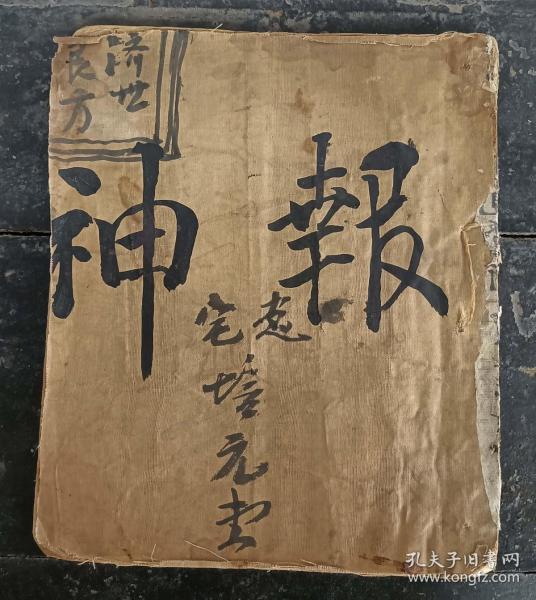 濟世
良方
報神
宅
培元堂
孔夫子旧书网
www.kongfz.com